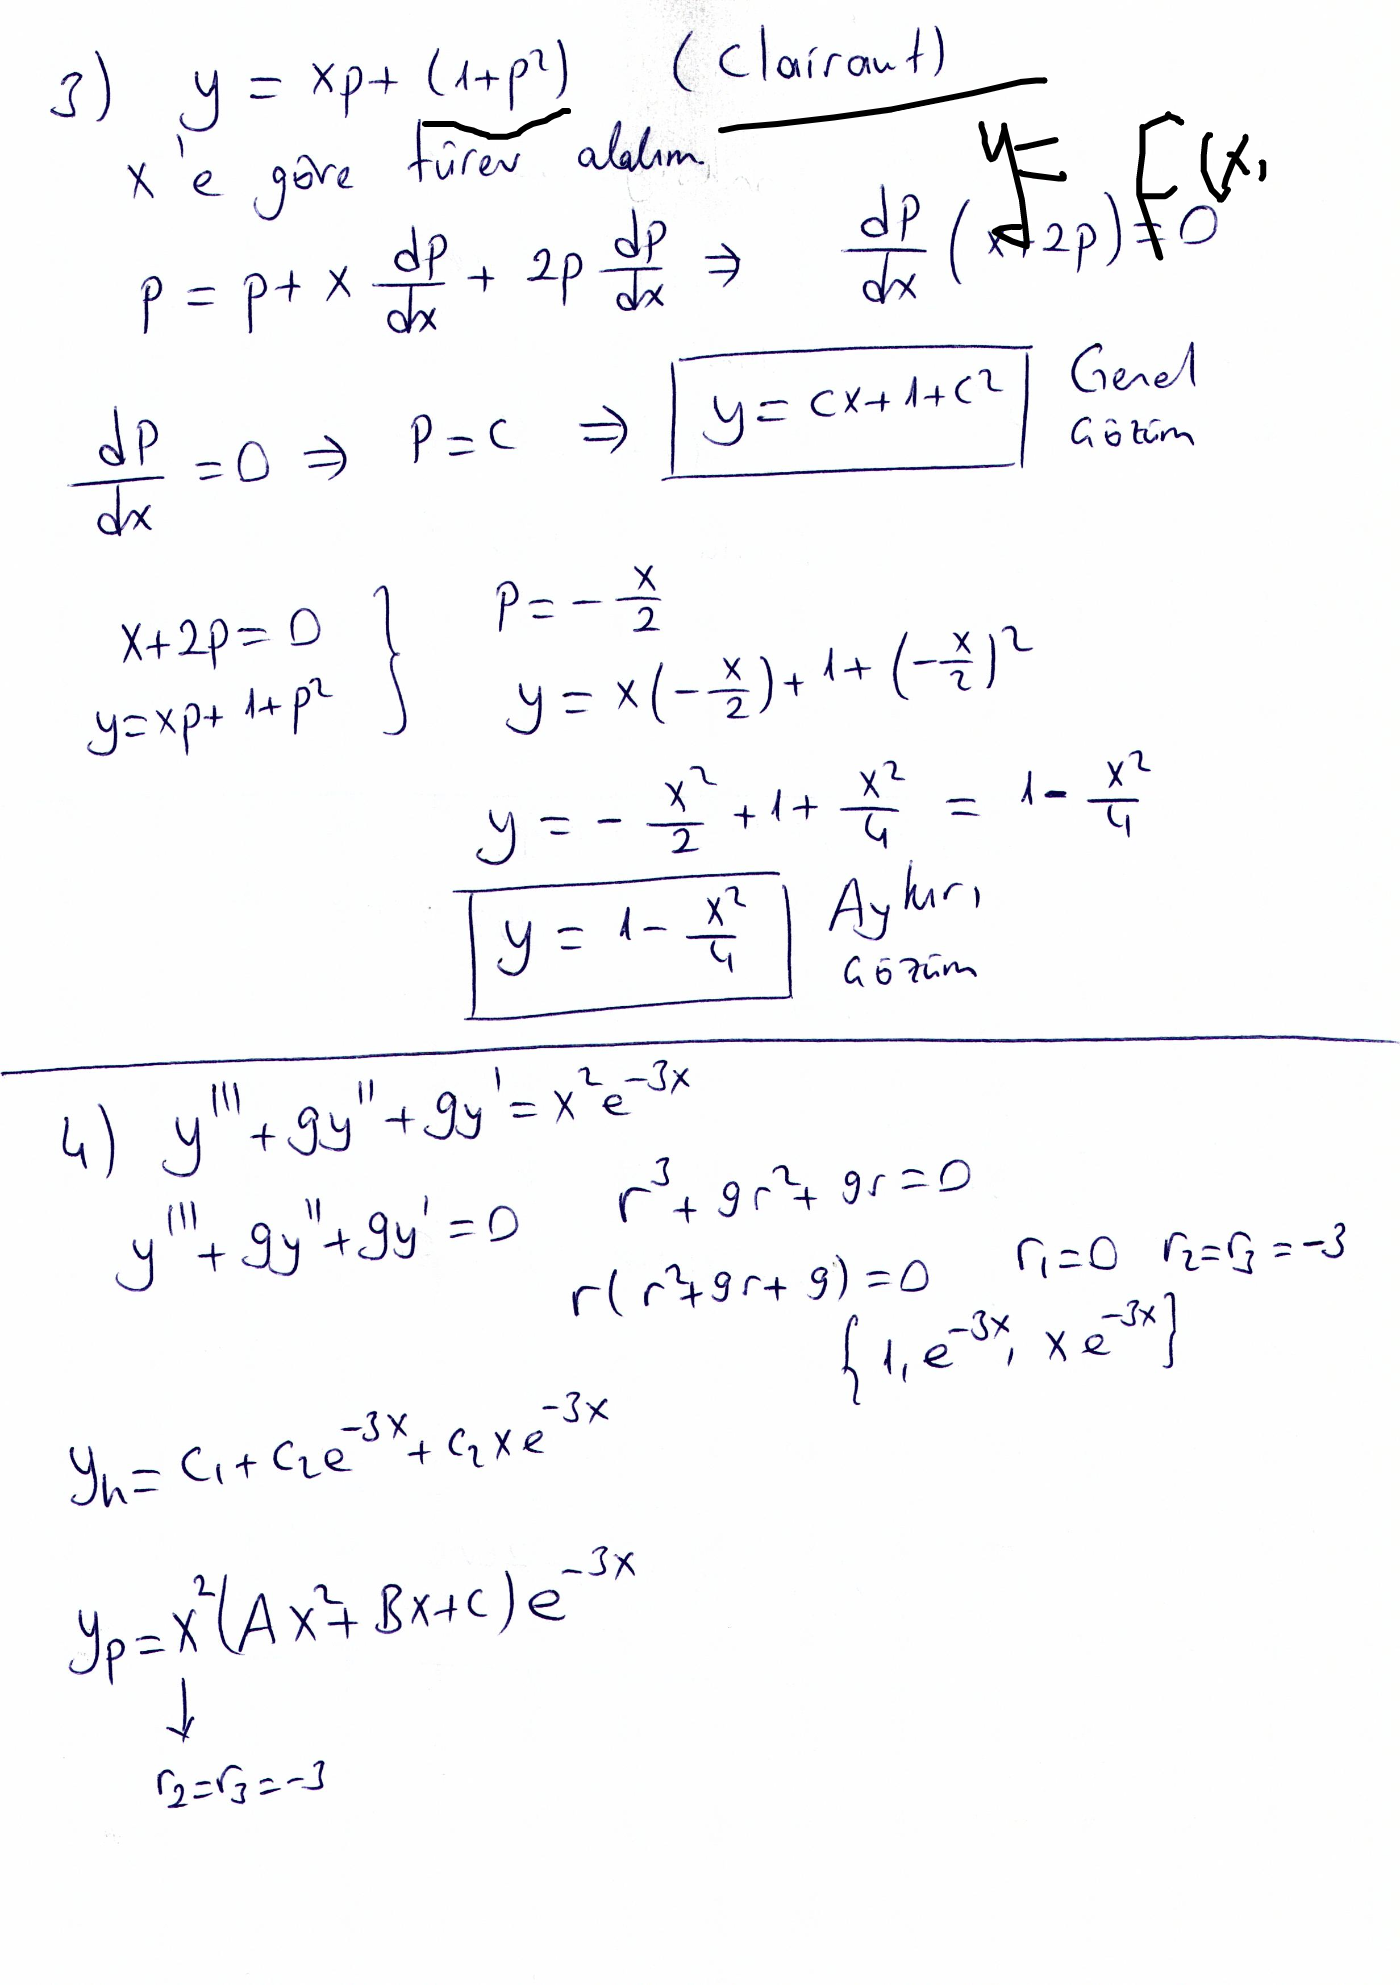 3) y = xp + (1+p²) (Clairaut)
x'e göre türev alalım. y = F(x,
p = p + x dp/dx + 2p dp/dx ⇒ dp/dx (x+2p) = 0
dp/dx = 0 ⇒ p = c ⇒ y = cx+1+c² Genel
Çözüm
x+2p = 0 } p = - x/2
y = xp + 1+p² y = x(-x/2) + 1 + (-x/2)²
y = - x²/2 + 1 + x²/4 = 1 - x²/4
y = 1 - x²/4 Aykırı
Çözüm
4) y''' + 9y'' + 9y' = x²e^-3x
y''' + 9y'' + 9y' = 0 r³ + 9r² + 9r = 0
r(r² + 9r + 9) = 0 r₁ = 0 r₂ = r₃ = -3
{1, e^-3x, xe^-3x}
y_h = c₁ + c₂e^-3x + c₂xe^-3x
y_p = x²(Ax² + Bx + C)e^-3x
↓
r₂ = r₃ = -3